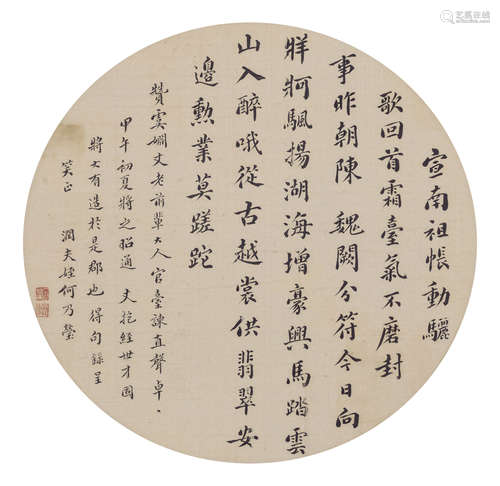 宣南祖帳動驪
歌回首霜臺氣不磨封
事昨朝陳魏闕分符今日向
牂牁颿揚湖海增豪興馬踏雲
山入醉哦從古越裳供翡翠安
邊勳業莫蹉跎
贊虞姻丈老前輩大人官臺諫直聲卓〻
甲午初夏將之昭通 丈抱經世才固
將大有造於是郡也得句錄呈
笑正 潤夫姪何乃瑩